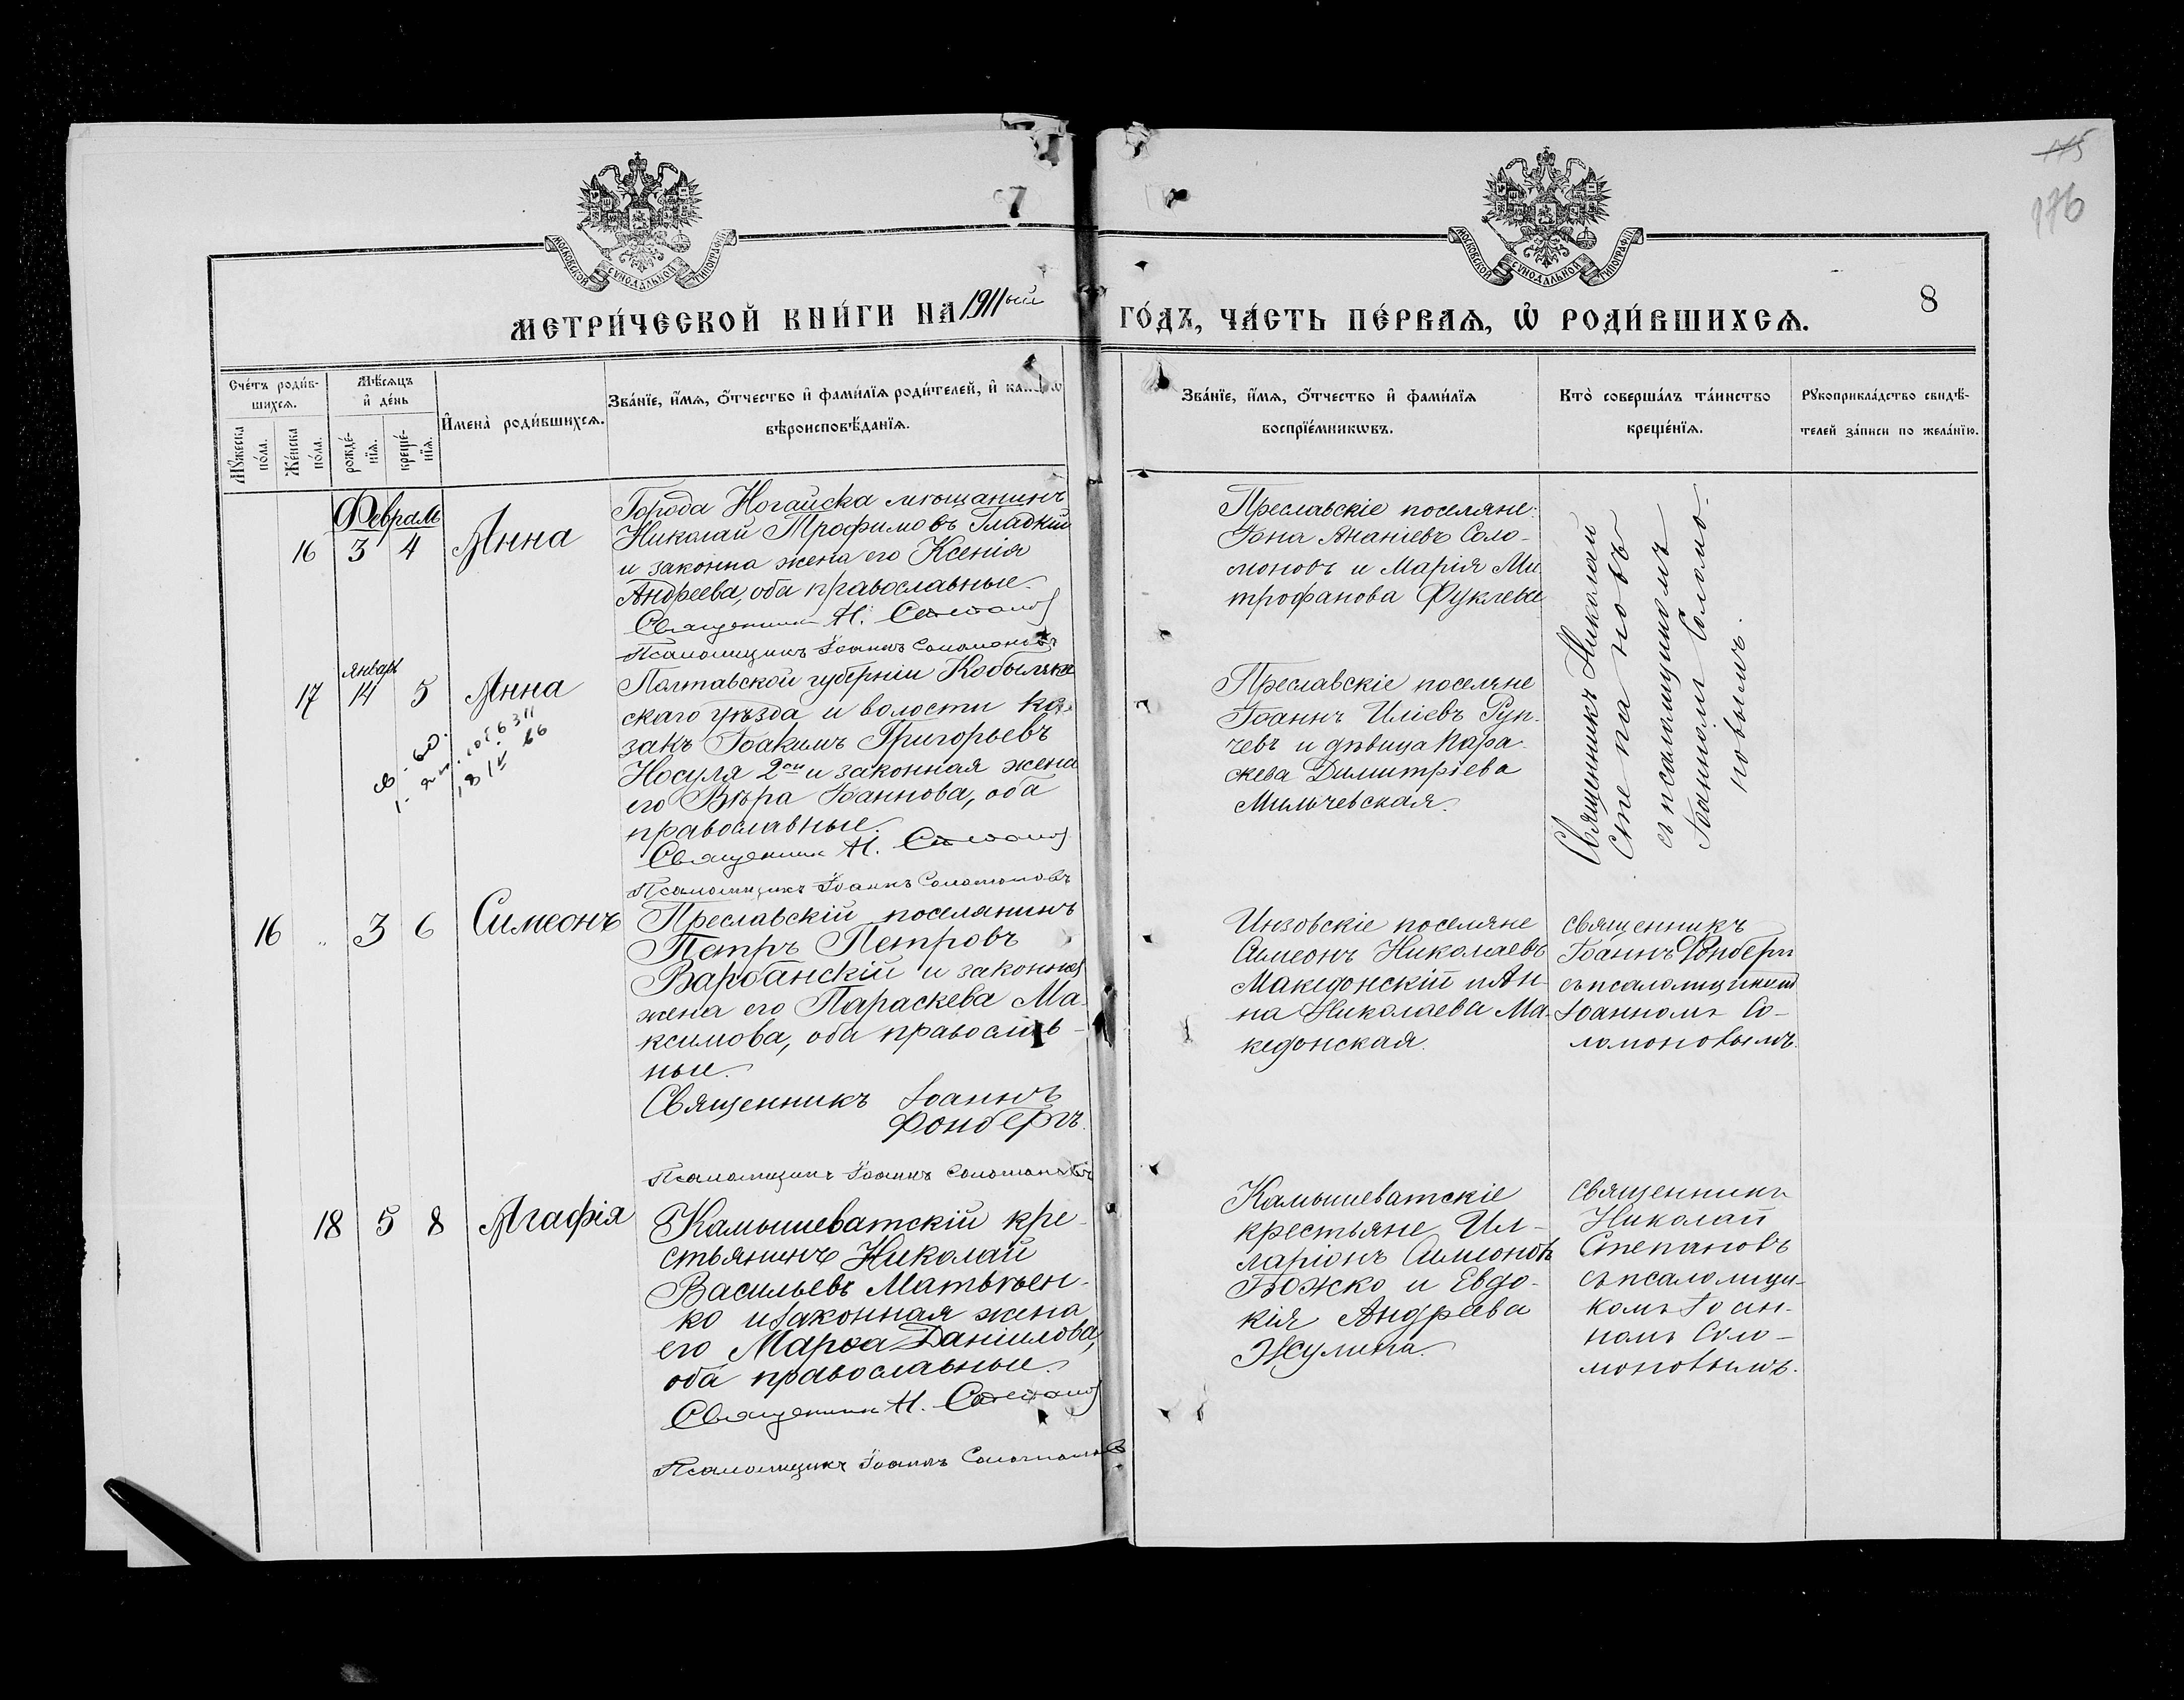 175
176
7
МОСКОВСКОЙ СѴНОДАЛЬНОЙ ТИПОГРАФІИ
МОСКОВСКОЙ СѴНОДАЛЬНОЙ ТИПОГРАФІИ
МЕТРИ́ЧЕСКОЙ КНИ́ГИ НА 1911ый
ГО́ДЪ, ЧА́СТЬ ПЕ́РВАѦ, Ѽ РОДИ́ВШИХСѦ.
8
Сче́тъ роди́в-
шихсѧ.
Мѣ́сѧцъ
и҆ де́нь
Мꙋ́жеска
по́ла.
Же́нска
по́ла.
рожде́-
нїѧ.
креще́-
нїѧ.
И҆мена̀ роди́вшихсѧ.
Зва́нїе, и҆́мѧ, ѻ҆́тчество и҆ фами́лїѧ роди́телей, и҆
вѣроисповѣ́данїѧ.
Зва́нїе, и҆́мѧ, ѻ҆́тчество и҆ фами́лїѧ
воспрїе́мникѡвъ.
Кто̀ соверша́лъ та́инство
креще́нїѧ.
Рꙋкоприкла́дство свидѣ́-
телей за́писи по жела́нїю.
Феврал
16 3 4 Анна
Города Ногайска мѣщанинъ
Николай Трофимовъ Гладкій
и законна жена его Ксенія
Андреева, оба православные.
Священник Н. Степанов
Псаломщикъ Іоаннъ Соломоновъ
Преславскіе поселяне:
Іона Ананіевъ Соло-
моновъ и Марія Ми
трофанова
Священникъ Николай
Степановъ
съ псаломщикомъ
Іоанномъ Соломо-
новымъ.
Январ
17 14 5 Анна
Полтавской губерніи Кобыляк
скаго уѣзда и волости ка-
закъ Іоакимъ Григорьевъ
Носуля 2ой и законная жена
его Вѣра Іоаннова, оба
православные.
Священник Н. Степанов
Псаломщикъ Іоаннъ Соломоновъ
Преславскіе поселяне
Іоаннъ Иліевъ Рун-
чевъ и дѣвица Пара
скева Димитріева
Мильчевская.
16 „ 3 6 Симеонъ
Преславскій поселянинъ
Петръ Петровъ
Варбанскій и законная
жена его Параскева Ма-
ксимова, оба православ-
ные.
Священникъ Іоаннъ
Фонбергъ.
Псаломщикъ Іоаннъ Соломоновъ
Инзовскіе поселяне
Симеонъ Николаевъ
Македонскій и Ан-
на Николаева Ма-
кедонская.
священникъ
Іоаннъ Фонбергъ
съ псаломщикомъ
Іоанномъ Со-
ломоновымъ.
18 5 8 Агафія
Камышеватскій кре-
стьянинъ Николай
Васильевъ Матвѣен-
ко и законная жена
его Марѳа Даніилова,
оба православные.
Священник Н. Степанов
Псаломщикъ Іоаннъ Соломонов
Камышеватскіе
крестьяне Ил-
ларіонъ Симеоновъ
Божко и Евдо-
кія Андреева
Жулина.
священникъ
Николай
Степановъ
съ псаломщи-
комъ Іоан-
номъ Соло-
моновымъ.